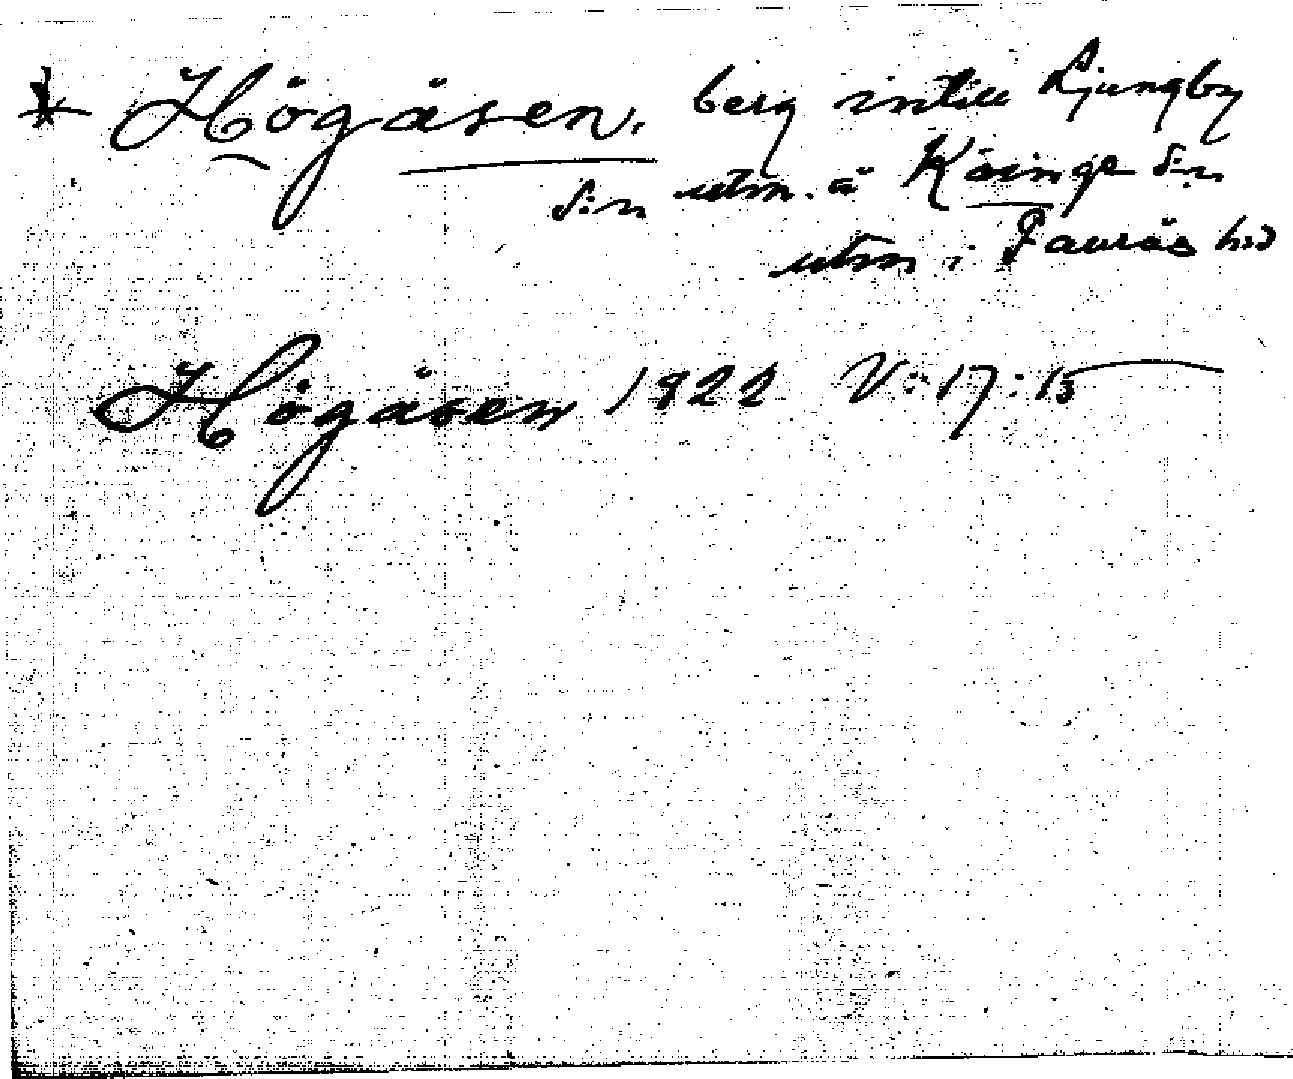 * Högåsen, berg intill Ljungby
s:n utm. å Köinge s:n
utm i Faurås hd
Högåsen 1822 V:17:15